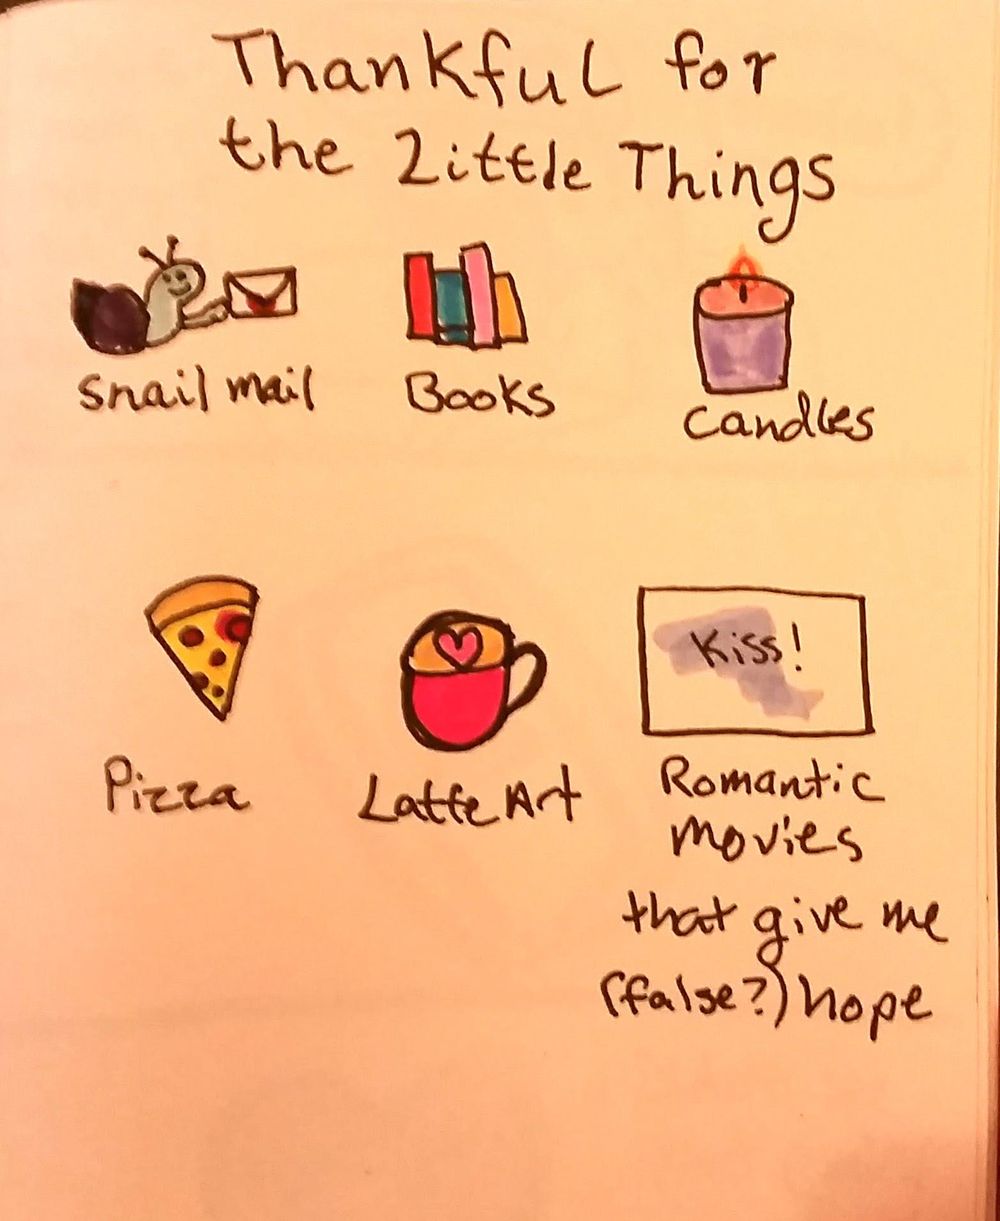 Thankful for
the Little Things
snail mail
Books
candles
Pizza
Latte Art
Kiss!
Romantic
movies
that give me
(false?) hope